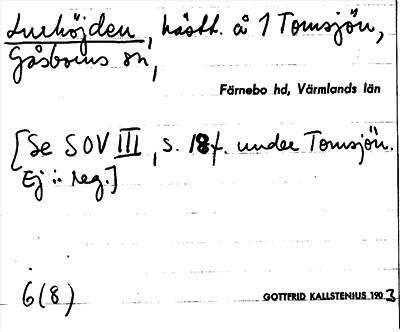 Lurhöjden, häótt. å 1 Tomsjön,
Gåsborns sn,
Färnebo hd, Värmlands län
[Se SOV III, s. 18f. under Tomsjön.
Ej i reg.]
6(8)
GOTTFRID KALLSTENIUS 1903